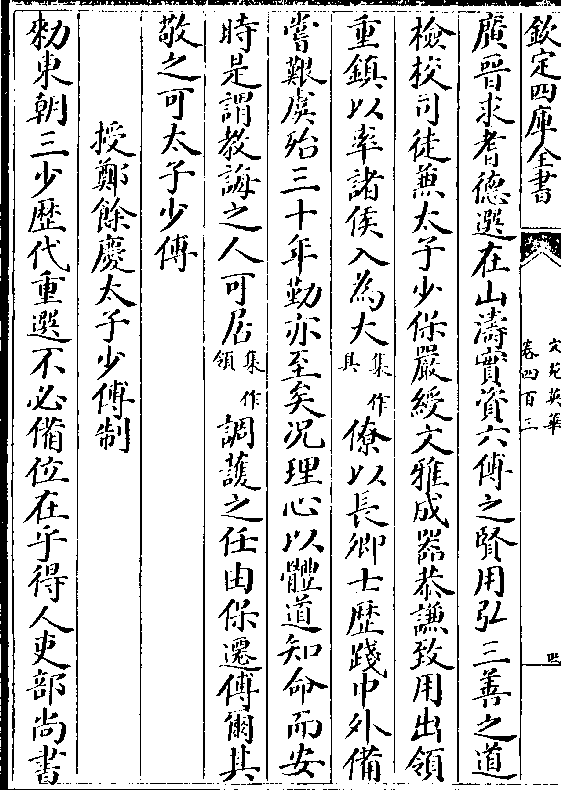 欽定四庫全書
文苑英華
卷四百三
廣晉求耆德選在山濤實資六傅之賢用弘三善之道
檢校司徒兼太子少保嚴綬文雅成器恭謙致用出領
重鎮以率諸侯入為大集作具僚以長卿士歷踐中外備
嘗艱虞殆三十年勤亦至矣況理心以體道知命而安
時是謂教誨之人可居集作領調護之任由保遷傅爾其
敬之可太子少傅
授鄭餘慶太子少傅制
勑東朝三少歷代重選不必備位在乎得人吏部尚書